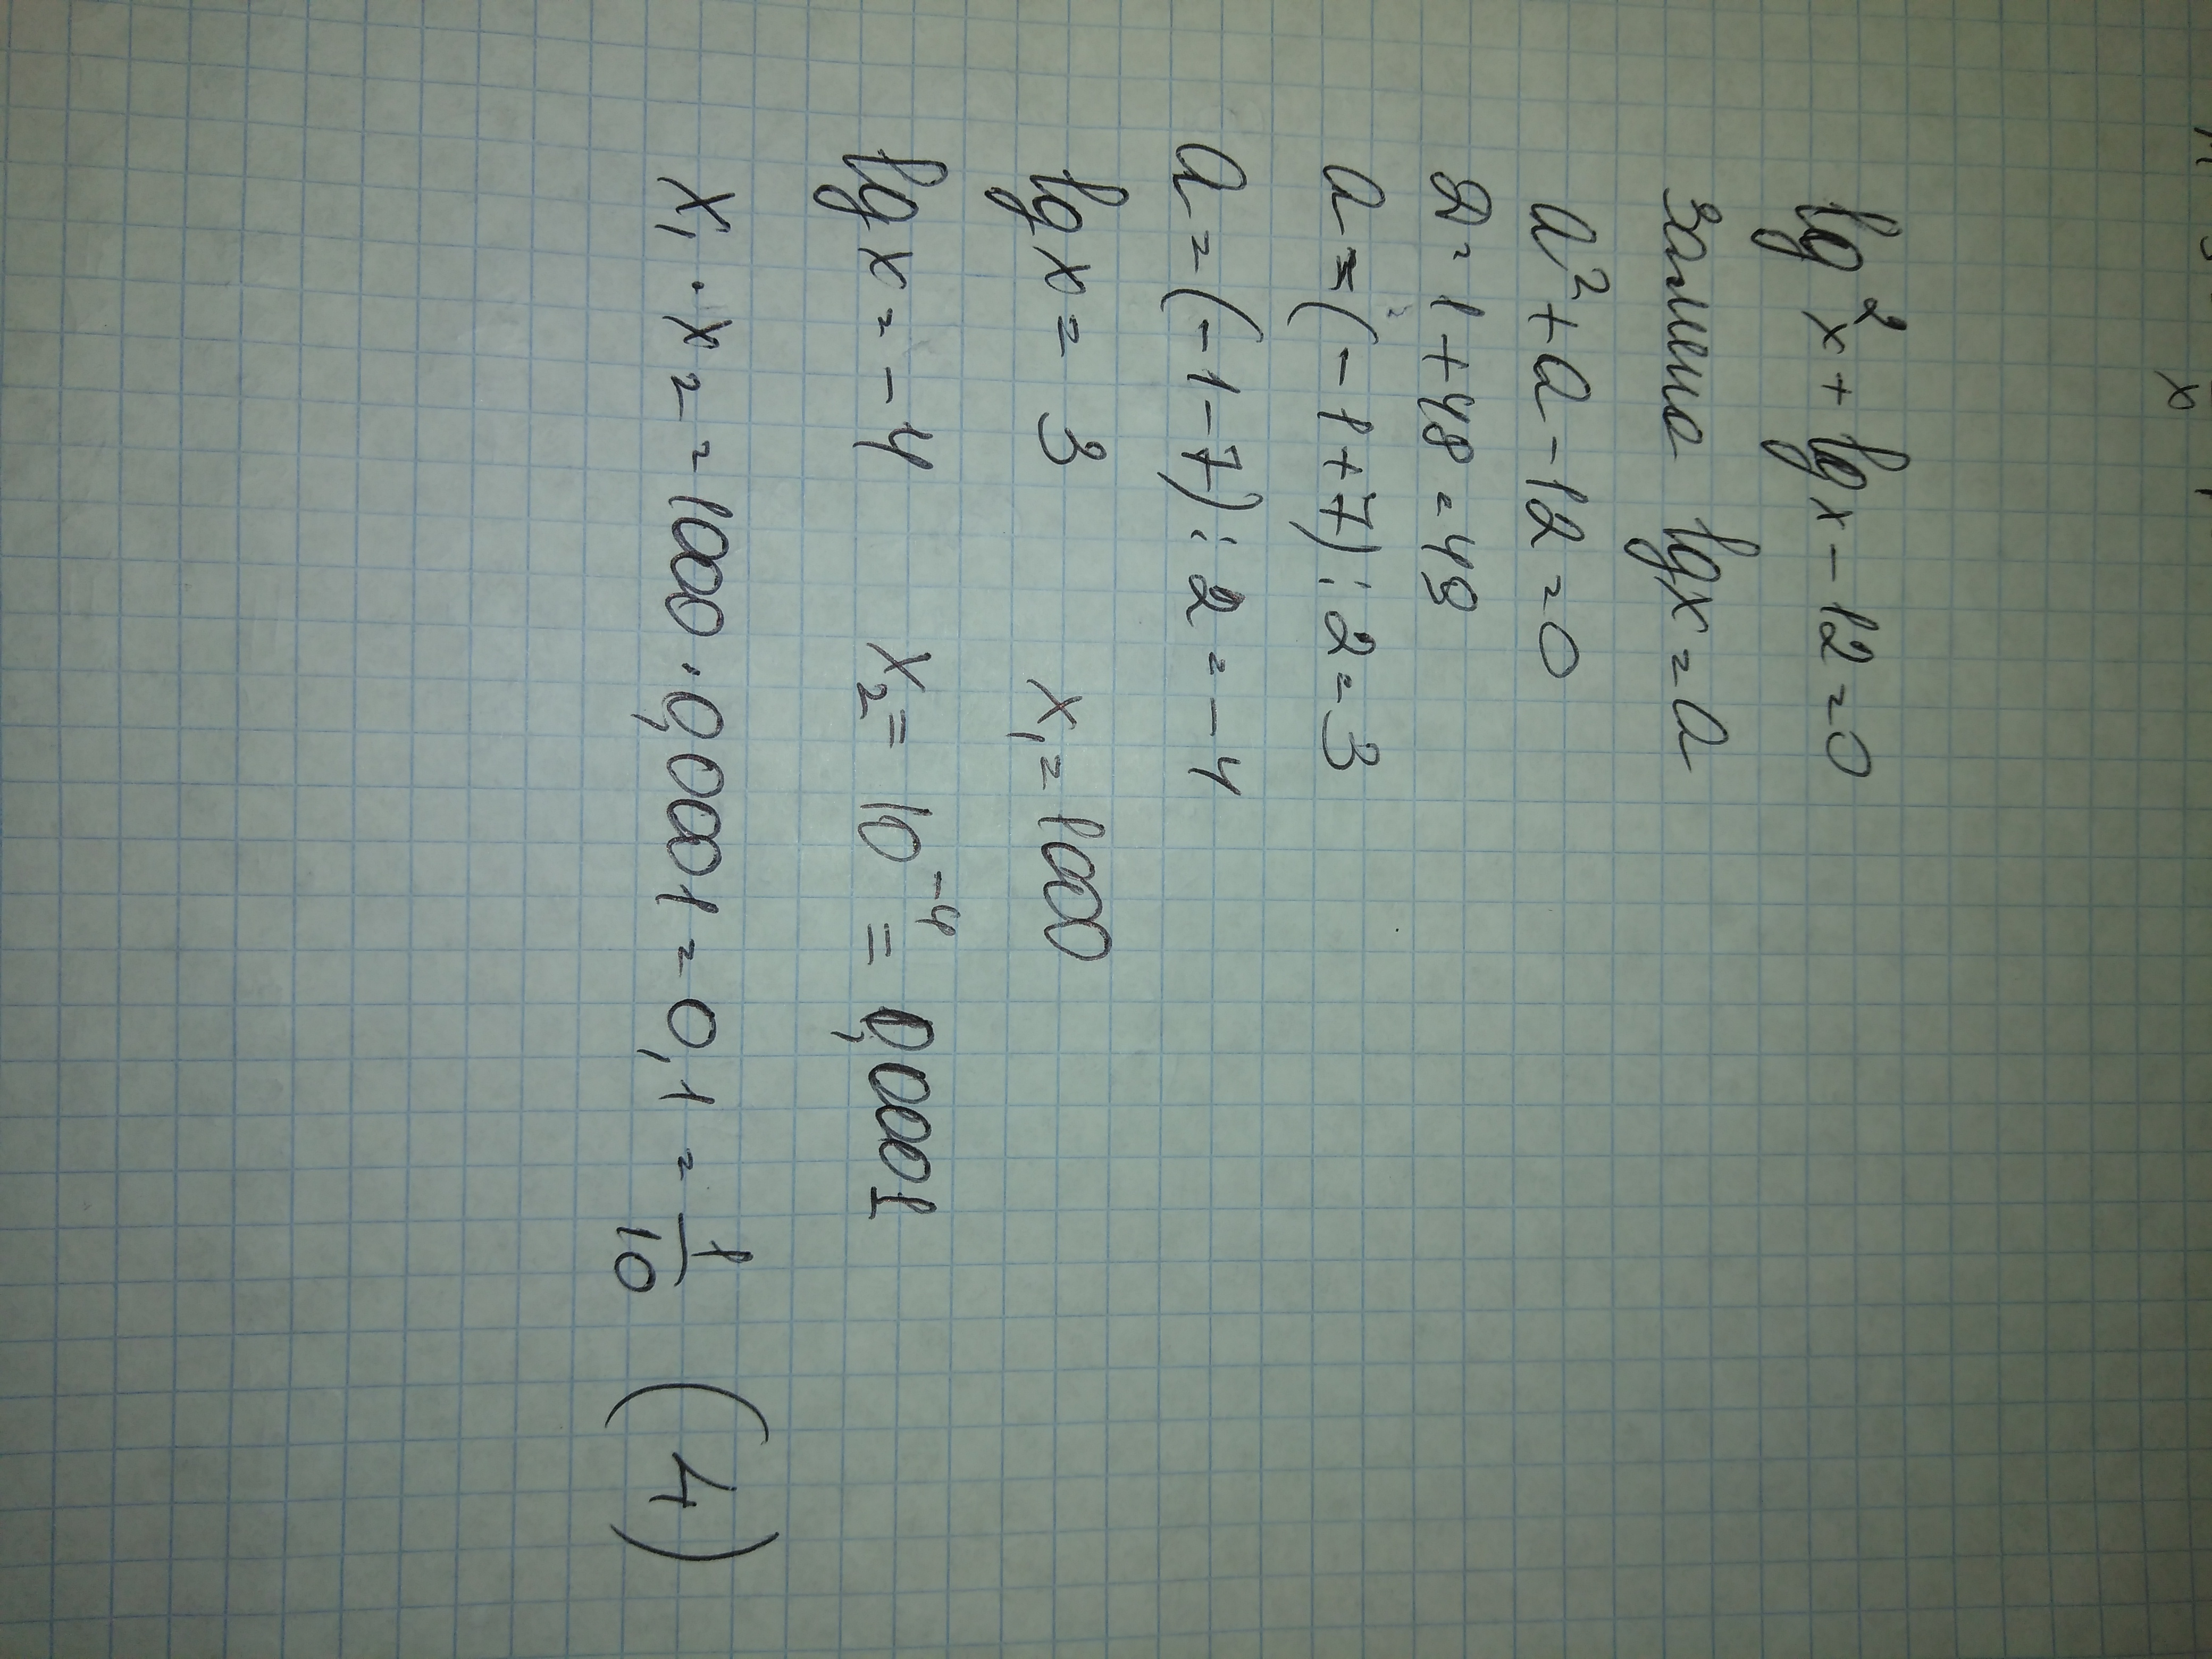 lg²x + lgx - 12 = 0
замена lgx = a
a² + a - 12 = 0
D = 1 + 48 = 49
a = (-1 + 7) : 2 = 3
a = (-1 - 7) : 2 = -4
lgx = 3 x₁ = 1000
lgx = -4 x₂ = 10⁻⁴ = 0,0001
x₁ · x₂ = 1000 · 0,0001 = 0,1 = 1/10 (4)